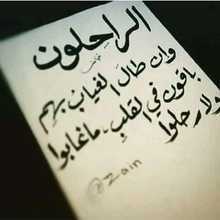 الراحلون
وان طال الغياب بهم
باقون في القلب - ماغابوا
ولا رحلوا
@Zain